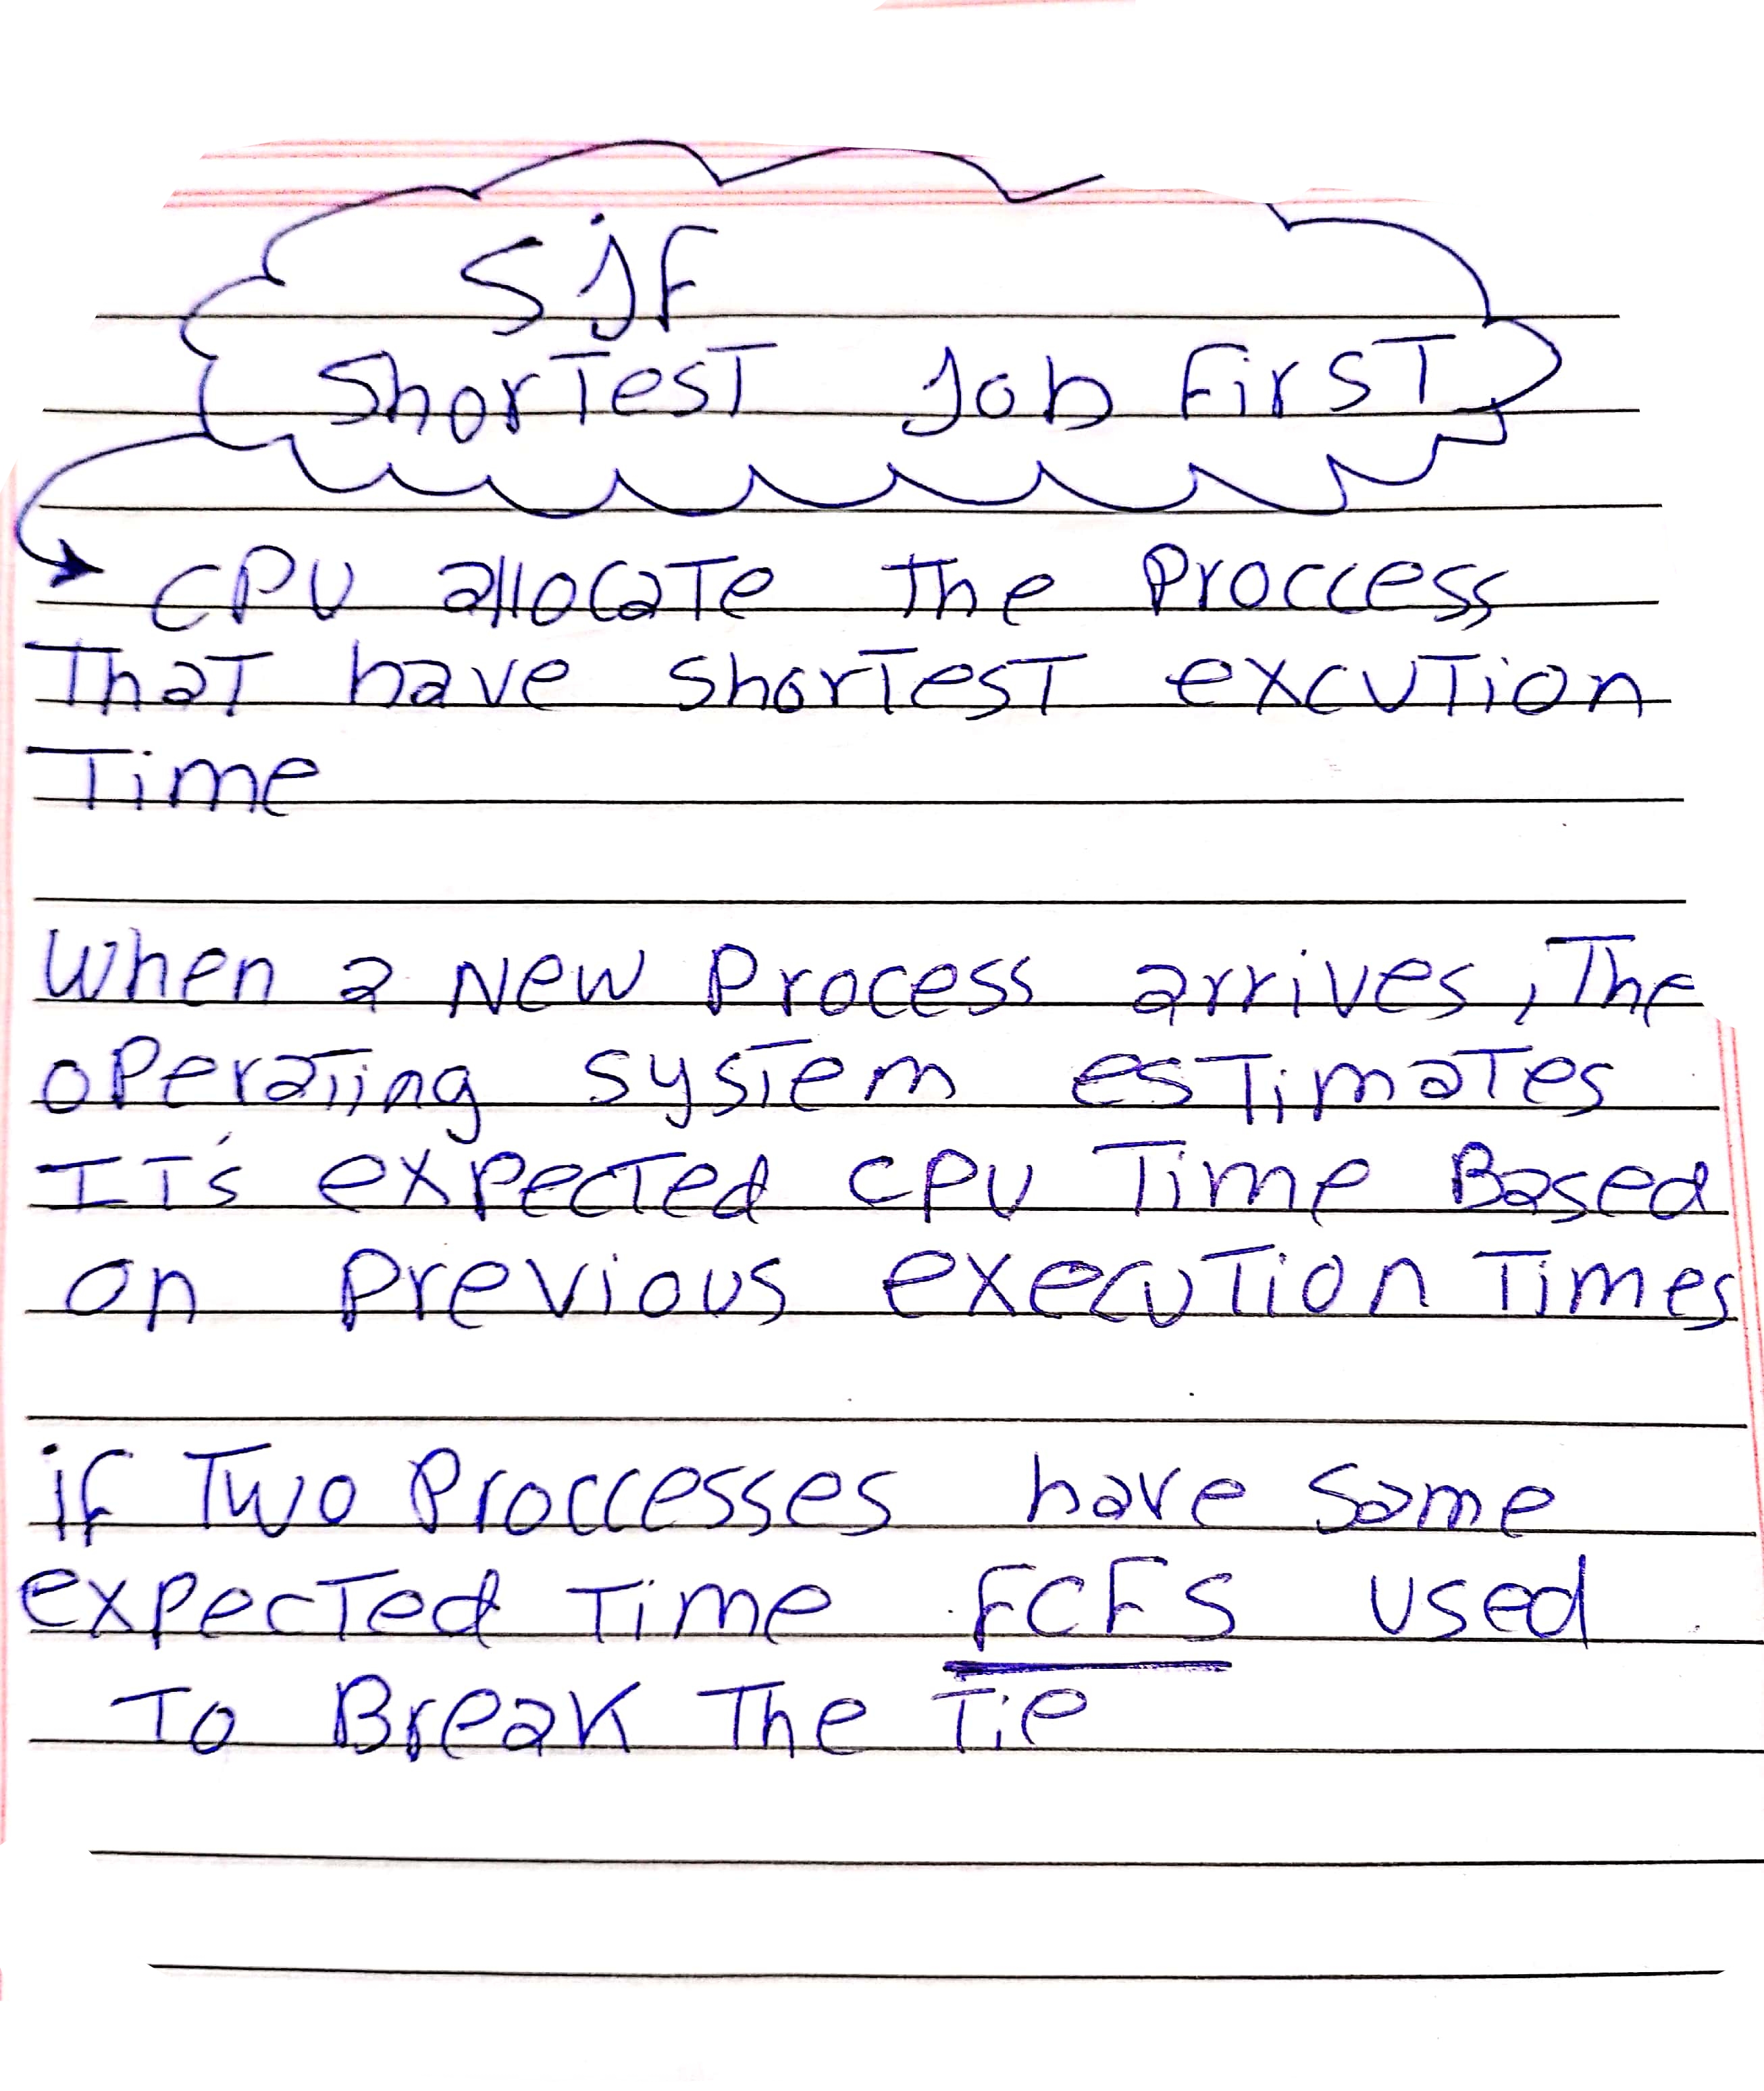 SJF
ShorTesT Job FirsT
CPU allocaTe The Proccess
ThaT have shorTesT excuTion
Time
When a New Process arrives, The
operaTing sysTem esTimaTes
ITs' expecTed cpu Time Based
on Previous execuTion Times
if Two Proccesses have Same
expecTed Time FCFS used
To Break The Tie